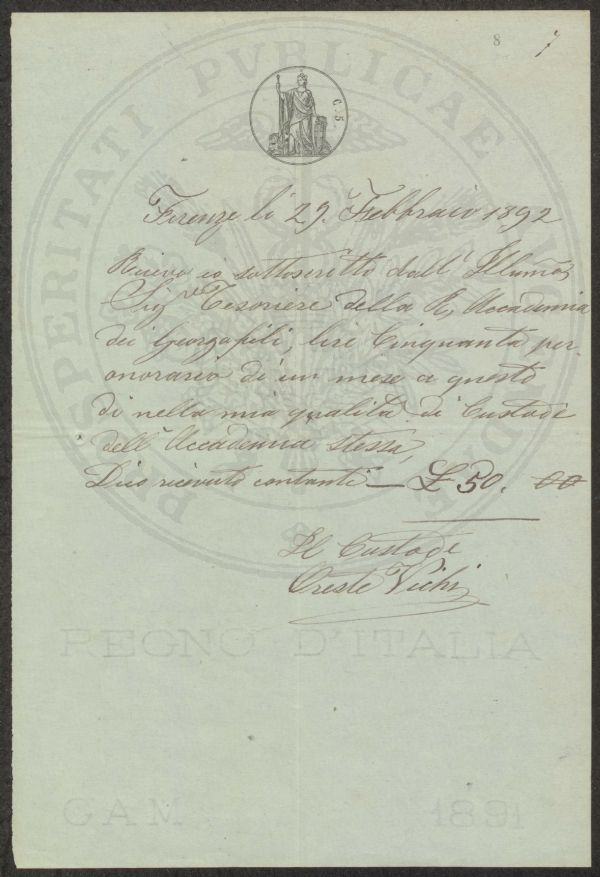 8 7
C. 5.
Firenze li 29. Febbraio 1892
Ricevo io sottoscritto dall' Illumo
Sigr Tesoriere della R, Accademia
dei Georgofili, lire Cinquanta per
onorario di un mese a questo
dì nella mia qualità di Custode
dell' Accademia stessa,
Dico ricevuto contanti — £ 50. 00
Il Custode
Oreste Vichi
PROSPERITATI PVBLICAE AVGENDAE
REGNO D'ITALIA
CAM 1891